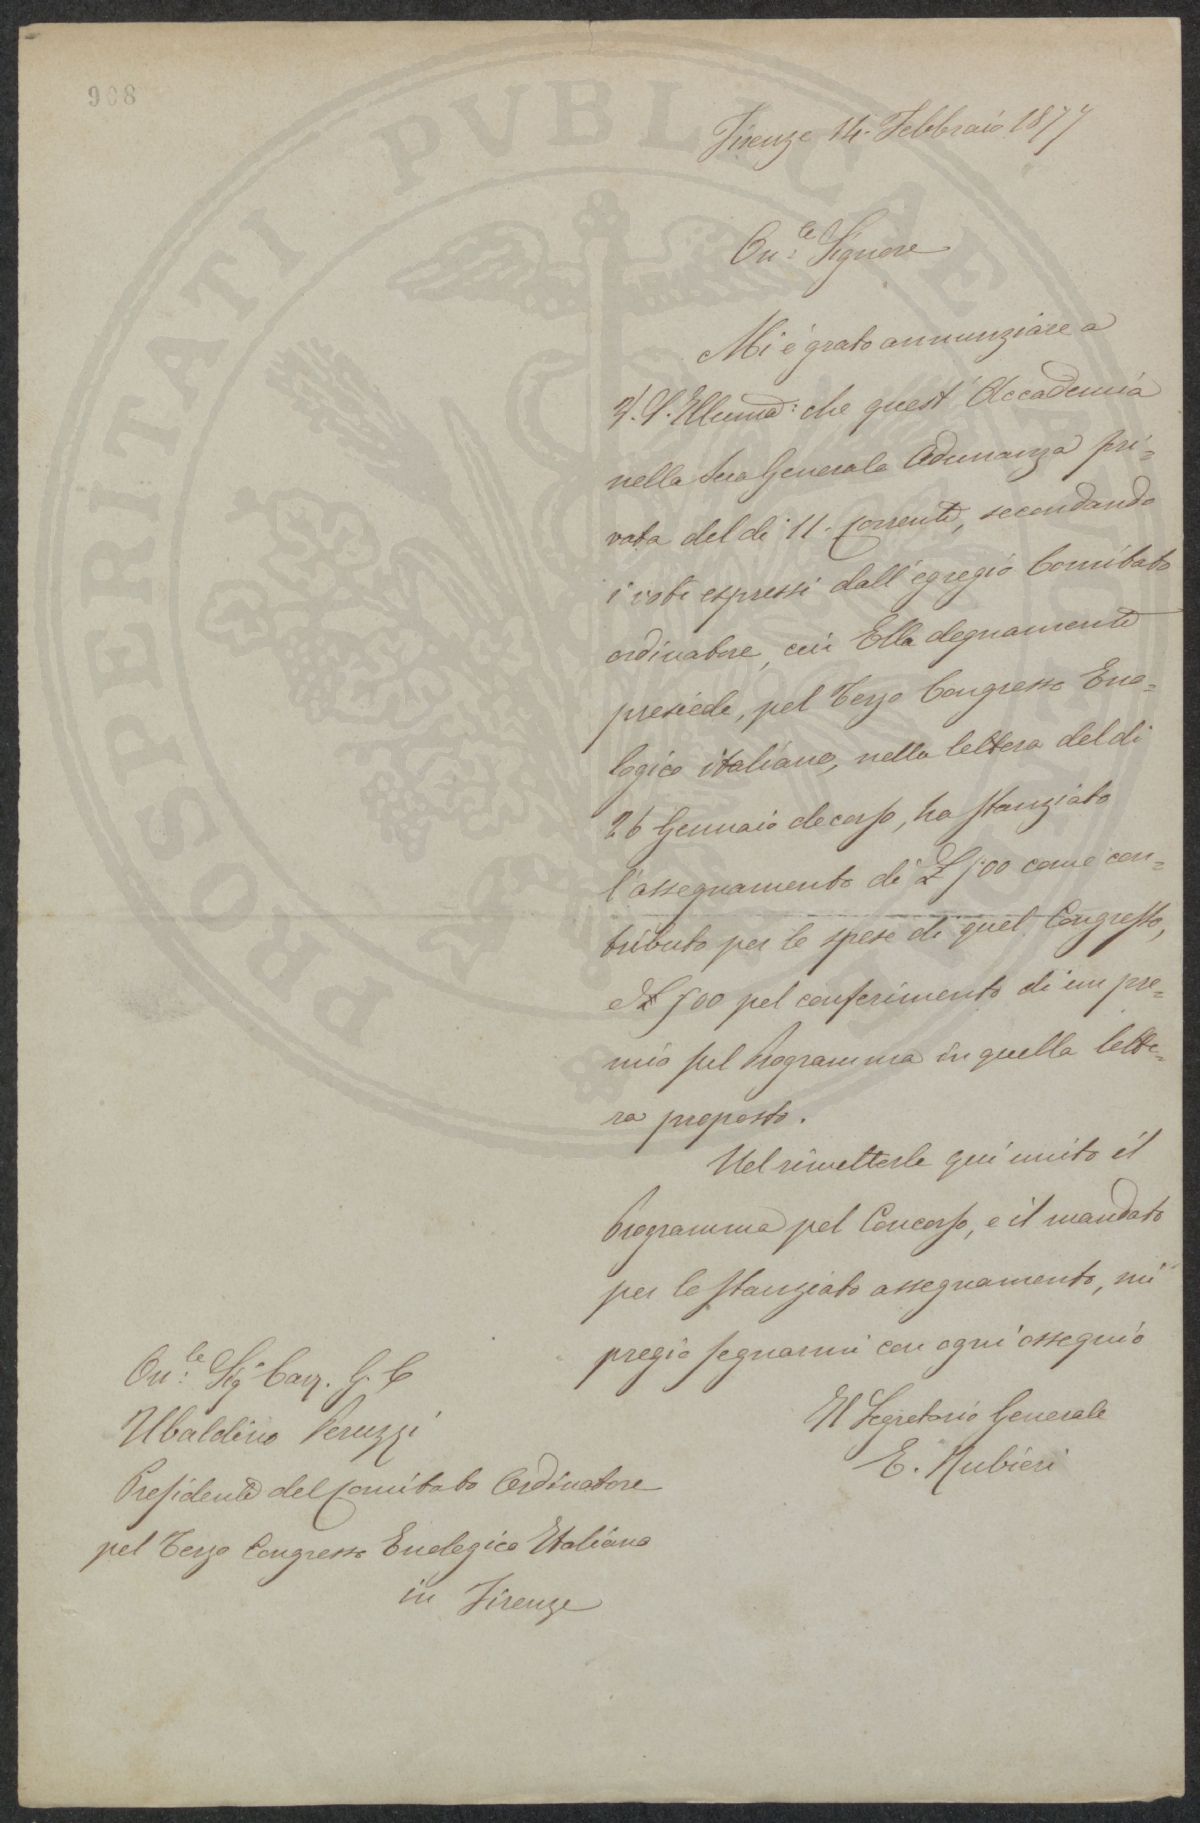 908
Firenze 14. Febbraio 1877
On:le Signore
Mi è grato annunziare a
V. S. Illuma: che quest' Accademia
nella sua Generale Adunanza pri=
vata del dì 11. corrente, secondando
i voti espressi dall' egregio Comitato
ordinatore, cui Ella degnamente
presiede, pel Terzo Congresso Eno=
logico italiano, nella lettera del dì
26 Gennaio decorso, ha stanziato
l'assegnamento di £ 500 come con=
tributo per le spese di quel Congresso,
e £ 500 pel conferimento di un pre=
mio sul Programma in quella lette=
ra proposto.
Nel rimetterle qui unito il
Programma pel Concorso, e il mandato
per lo stanziato assegnamento, mi
pregio segnarmi con ogni ossequio
Il Segretario Generale
E. Rubieri
On:le Sig. Cav. G. C
Ubaldino Peruzzi
Presidente del Comitato Ordinatore
pel Terzo Congresso Enologico Italiano
in Firenze
PROSPERITATI PVBLICAE AVGENDAE